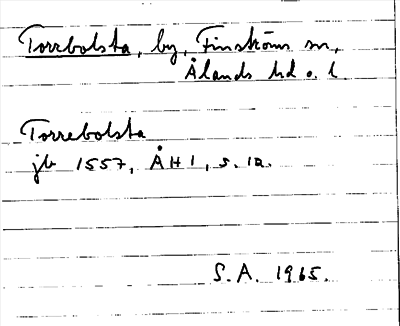 Torrbolsta, by, Finströms sn,
Ålands hd o. l
Torrebolsta
jb 1557, ÅH 1, s. 12.
S.A. 1965.